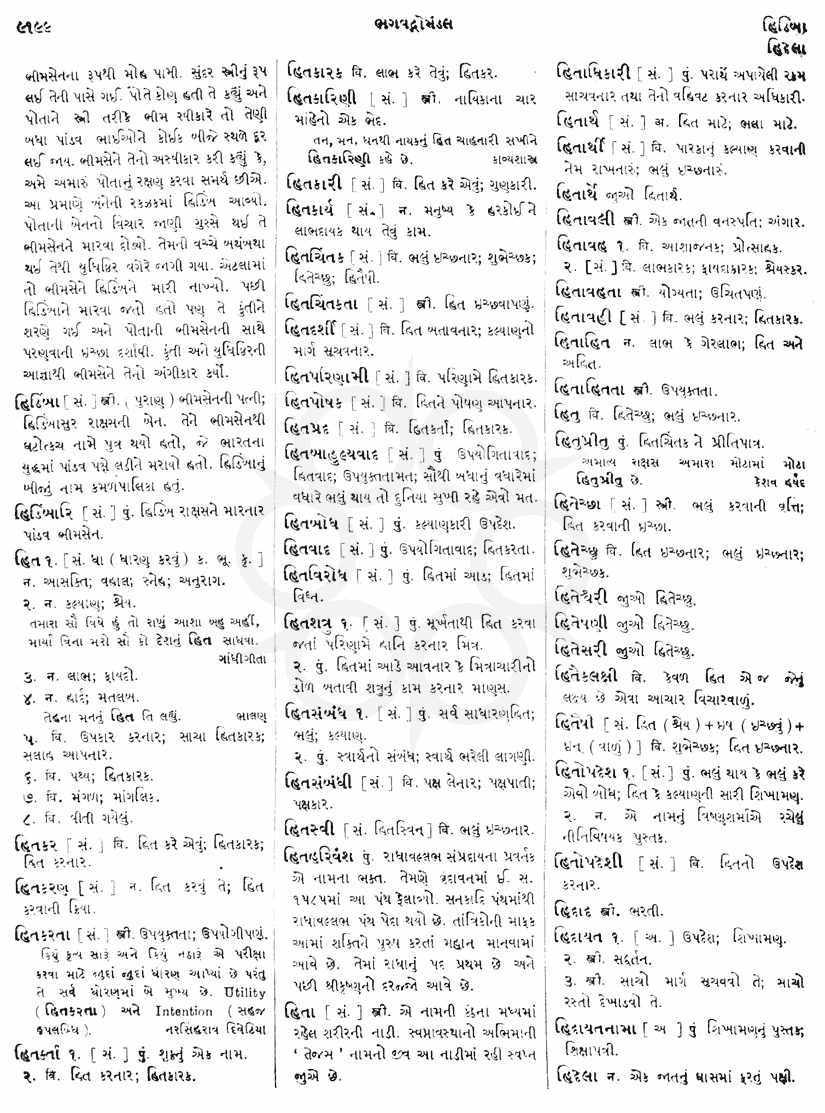 ૯૧૯૯
ભગવદ્ગોમંડલ
હિડિંબા
હિદેલા
ભીમસેનના રૂપથી મોહ પામી. સુંદર સ્ત્રીનું રૂપ
લઈ તેની પાસે ગઈ. પોતે કોણ હતી તે કહ્યું અને
પોતાને સ્ત્રી તરીકે ભીમ સ્વીકારે તો તેણી
બધા પાંડવ ભાઈઓને કોઈક બીજે સ્થળે દૂર
લઈ જાય. ભીમસેને તેનો અસ્વીકાર કરી કહ્યું કે,
અમે અમારું પોતાનું રક્ષણ કરવા સમર્થ છીએ.
આ પ્રમાણે બંનેની રકઝકમાં હિડિંબ આવ્યો.
પોતાની બેનનો વિચાર જાણી ગુસ્સે થઈ તે
ભીમસેનને મારવા દોડ્યો. તેમની વચ્ચે બથંબથા
થઈ તેથી યુધિષ્ઠિર વગેરે જાગી ગયા. એટલામાં
તો ભીમસેને હિડિંબને મારી નાખ્યો. પછી
હિડિંબાને મારવા જતો હતો પણ તે કુંતીને
શરણે ગઈ અને પોતાની ભીમસેનની સાથે
પરણવાની ઇચ્છા દર્શાવી. કુંતી અને યુધિષ્ઠિરની
આજ્ઞાથી ભીમસેને તેનો અંગીકાર કર્યો.
હિડિંબા [ સં. ] સ્ત્રી. ( પુરાણ ) ભીમસેનની પત્ની;
હિડિંબાસુર રાક્ષસની બેન. તેને ભીમસેનથી
ઘટોત્કચ નામે પુત્ર થયો હતો, જે ભારતના
યુદ્ધમાં પાંડવ પક્ષે લડીને મરાયો હતો. હિડિંબાનું
બીજું નામ કમળપાલિકા હતું.
હિડિંબારિ [ સં. ] પું. હિડિંબ રાક્ષસને મારનાર
પાંડવ ભીમસેન.
હિત ૧. [ સં. ધા ( ધારણ કરવું ) ક. ભૂ. કૃ. ]
ન. આસક્તિ; વહાલ; સ્નેહ; અનુરાગ.
૨. ન. કલ્યાણ; શ્રેય.
તમારા સૌ વિષે હું તો રાખું આશા બહુ અહીં,
માર્યા વિના મરો સૌ કો દેશનું હિત સાધવા.
ગાંધીગીતા
૩. ન. લાભ; ફાયદો.
૪. ન. હાર્દ; મતલબ.
તેહના મનનું હિત તિ લહ્યું. ભાલણ
૫. વિ. ઉપકાર કરનાર; સાચા હિતકારક;
સલાહ આપનાર.
૬. વિ. પથ્ય; હિતકારક.
૭. વિ. મંગળ; માંગલિક.
૮. વિ. વીતી ગયેલું.
હિતકર [ સં. ] વિ. હિત કરે એવું; હિતકારક;
હિત કરનાર.
હિતકરણ [ સં. ] ન. હિત કરવું તે; હિત
કરવાની ક્રિયા.
હિતકરતા [ સં. ] સ્ત્રી. ઉપયુક્તતા; ઉપયોગીપણું.
કિયું કૃત્ય સારું અને કિયું નઠારું એ પરીક્ષા
કરવા માટે જુદાં જુદાં ધોરણ આપ્યાં છે પરંતુ
તે સર્વ ધોરણમાં બે મુખ્ય છે. Utility
( હિતકરતા ) અને Intention ( સહજ
ઉપલબ્ધિ ). નરસિંહરાવ દિવેટિયા
હિતકર્તા ૧. [ સં. ] પું. શુક્રનું એક નામ.
૨. વિ. હિત કરનાર; હિતકારક.
હિતકારક વિ. લાભ કરે તેવું; હિતકર.
હિતકારિણી [ સં. ] સ્ત્રી. નાયિકાના ચાર
માંહેનો એક ભેદ.
તન, મન, ધનથી નાયકનું હિત ચાહનારી સખીને
હિતકારિણી કહે છે. કાવ્યશાસ્ત્ર
હિતકારી [ સં. ] વિ. હિત કરે એવું; ગુણકારી.
હિતકાર્ય [ સં. ] ન. મનુષ્ય કે હરકોઈને
લાભદાયક થાય તેવું કામ.
હિતચિંતક [ સં. ] વિ. ભલું ઇચ્છનાર; શુભેચ્છક;
હિતેચ્છુ; હિતૈષી.
હિતચિંતકતા [ સં. ] સ્ત્રી. હિત ઇચ્છવાપણું.
હિતદર્શી [ સં. ] વિ. હિત બતાવનાર; કલ્યાણનો
માર્ગ સૂચવનાર.
હિતપરિણામી [ સં. ] વિ. પરિણામે હિતકારક.
હિતપોષક [ સં. ] વિ. હિતને પોષણ આપનાર.
હિતપ્રદ [ સં. ] વિ. હિતકર્તા; હિતકારક.
હિતબાહુલ્યવાદ [ સં. ] પું ઉપયોગિતાવાદ;
હિતવાદ; ઉપયુક્તતામત; સૌથી બધાનું વધારેમાં
વધારે ભલું થાય તો દુનિયા સુખી રહે એવો મત.
હિતબોધ [ સં. ] પું. કલ્યાણકારી ઉપદેશ.
હિતવાદ [ સં. ] પું. ઉપયોગિતાવાદ; હિતકરતા.
હિતવિરોધ [ સં. ] પું. હિતમાં આડ; હિતમાં
વિઘ્ન.
હિતશત્રુ ૧. [ સં. ] પું. મૂર્ખતાથી હિત કરવા
જતાં પરિણામે હાનિ કરનાર મિત્ર.
૨. પું. હિતમાં આડે આવનાર કે મિત્રાચારીનો
ડોળ બતાવી શત્રુનું કામ કરનાર માણસ.
હિતસંબંધ ૧. [ સં. ] પું. સર્વ સાધારણહિત;
ભલું; કલ્યાણ.
૨. પું. સ્વાર્થનો સંબંધ; સ્વાર્થ ભરેલી લાગણી.
હિતસંબંધી [ સં. ] વિ. પક્ષ લેનાર; પક્ષપાતી;
પક્ષકાર.
હિતસ્વી [ સં. હિતસ્વિન ] વિ. ભલું ઇચ્છનાર.
હિતહરિવંશ પું. રાધાવલ્લભ સંપ્રદાયના પ્રવર્તક
એ નામના ભક્ત. તેમણે વૃંદાવનમાં ઈ. સ.
૧૫૮૫માં આ પંથ ફેલાવ્યો. સનકાદિ પંથમાંથી
રાધાવલ્લભ પંથ પેદા થયો છે. તાંત્રિકોની માફક
આમાં શક્તિને પુરષ કરતાં મહાન માનવામાં
આવે છે. તેમાં રાધાનું પદ પ્રથમ છે અને
પછી શ્રીકૃષ્ણનો દરજ્જો આવે છે.
હિતા [ સં. ] સ્ત્રી. એ નામની કંઠના મધ્યમાં
રહેલ શરીરની નાડી. સ્વપ્નાવસ્થાનો અભિમાની
‘ તેજમ ’ નામનો જીવ આ નાડીમાં રહી સ્વપ્ન
જુએ છે.
હિતાધિકારી [ સં. ] પું. પરાર્થે અપાયેલી રકમ
સાચવનાર તથા તેનો વહિવટ કરનાર અધિકારી.
હિતાર્થ [ સં. ] અ. હિત માટે; ભલા માટે.
હિતાર્થી [ સં. ] વિ. પારકાનું કલ્યાણ કરવાની
નેમ રાખનારું; ભલું ઇચ્છનારું.
હિતાર્થે જુઓ હિતાર્થ.
હિતાવલી સ્ત્રી. એક જાતની વનસ્પતિ; અંગાર.
હિતાવહ ૧. વિ. આશાજનક; પ્રોત્સાહક.
૨. [ સં. ] વિ. લાભકારક; ફાયદાકારક; શ્રેયસ્કર.
હિતાવહતા સ્ત્રી. યોગ્યતા; ઉચિતપણું.
હિતાવહી [ સં. ] વિ. ભલું કરનાર; હિતકારક.
હિતાહિત ન. લાભ કે ગેરલાભ; હિત અને
અહિત.
હિતાહિતતા સ્ત્રી. ઉપયુક્તતા.
હિતુ વિ. હિતેચ્છુ; ભલું ઇચ્છનાર.
હિતુપ્રીતુ પું. હિતચિંતક ને પ્રીતિપાત્ર.
અમાત્ય રાક્ષસ અમારા મોટામાં મોટા
હિતુપ્રીતુ છે. કેશવ હર્ષદ
હિતેચ્છા [ સં. ] સ્ત્રી. ભલું કરવાની વૃત્તિ;
હિત કરવાની ઇચ્છા.
હિતેચ્છુ વિ. હિત ઇચ્છનાર; ભલું ઇચ્છનાર;
શુભેચ્છક.
હિતેશ્વરી જુઓ હિતેચ્છુ.
હિતેષણી જુઓ હિતેચ્છુ.
હિતેસરી જુઓ હિતેચ્છુ.
હિતૈકલક્ષી વિ. કેવળ હિત એ જ જેનું
લક્ષ્ય છે એવા આચાર વિચારવાળું.
હિતૈષી [ સં. હિત ( શ્રેય ) + ઇષ ( ઇચ્છવું ) +
ઇન્ ( વાળું ) ] વિ. શુભેચ્છક; હિત ઇચ્છનાર.
હિતોપદેશ ૧. [ સં. ] પું. ભલું થાય કે ભલું કરે
એવો બોધ; હિત કે કલ્યાણની સારી શિખામણ.
૨. ન. એ નામનું વિષ્ણુશર્માએ રચેલું
નીતિવિષયક પુસ્તક.
હિતોપદેશી [ સં. ] વિ. હિતનો ઉપદેશ
કરનાર.
હિદાદ સ્ત્રી. ભરતી.
હિદાયત ૧. [ અ. ] ઉપદેશ; શિખામણ.
૨. સ્ત્રી. સદ્વર્તન.
૩. સ્ત્રી. સાચો માર્ગ સૂચવવો તે; સાચો
રસ્તો દેખાડવો તે.
હિદાયતનામા [ અ ] પું શિખામણનું પુસ્તક;
શિક્ષાપત્રી.
હિદેલા ન. એક જાતનું ઘાસમાં ફરતું પક્ષી.